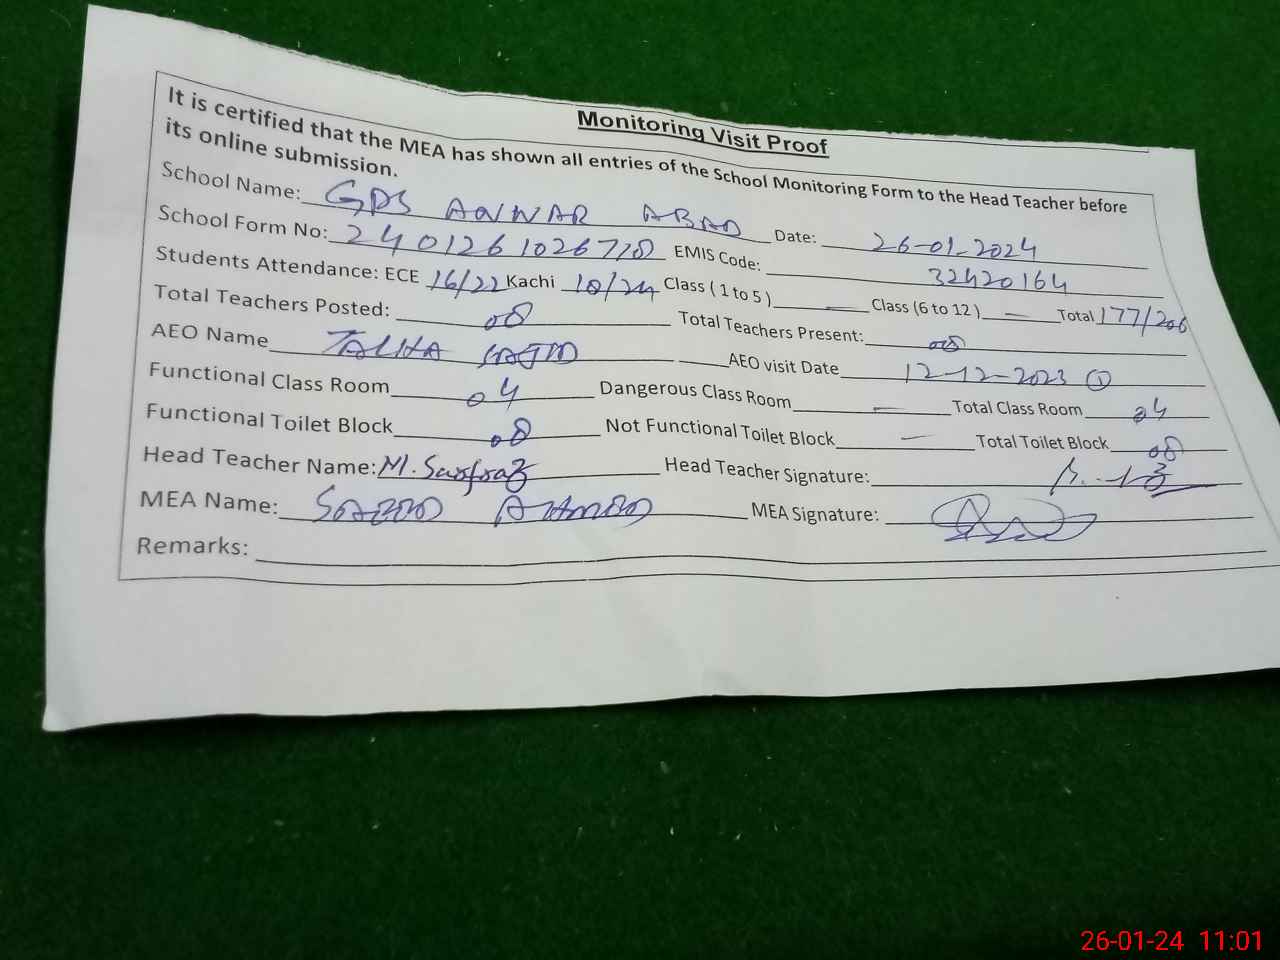 Monitoring Visit Proof
It is certified that the MEA has shown all entries of the School Monitoring Form to the Head Teacher before
its online submission.
School Name: GPS ANWAR ABAD Date: 26-01-2024
School Form No: EMIS Code: 32420164
Students Attendance: ECE 16/22 Kachi 18/24 Class ( 1 to 5 ) — Class (6 to 12 ) — Total 177/206
Total Teachers Posted: 08 Total Teachers Present: 08
AEO Name TALHA SAJID AEO visit Date 12-12-2023 ①
Functional Class Room 04 Dangerous Class Room — Total Class Room 04
Functional Toilet Block 08 Not Functional Toilet Block — Total Toilet Block 08
Head Teacher Name: M. Sarfraz Head Teacher Signature:
MEA Name: MEA Signature:
Remarks:
26-01-24 11:01